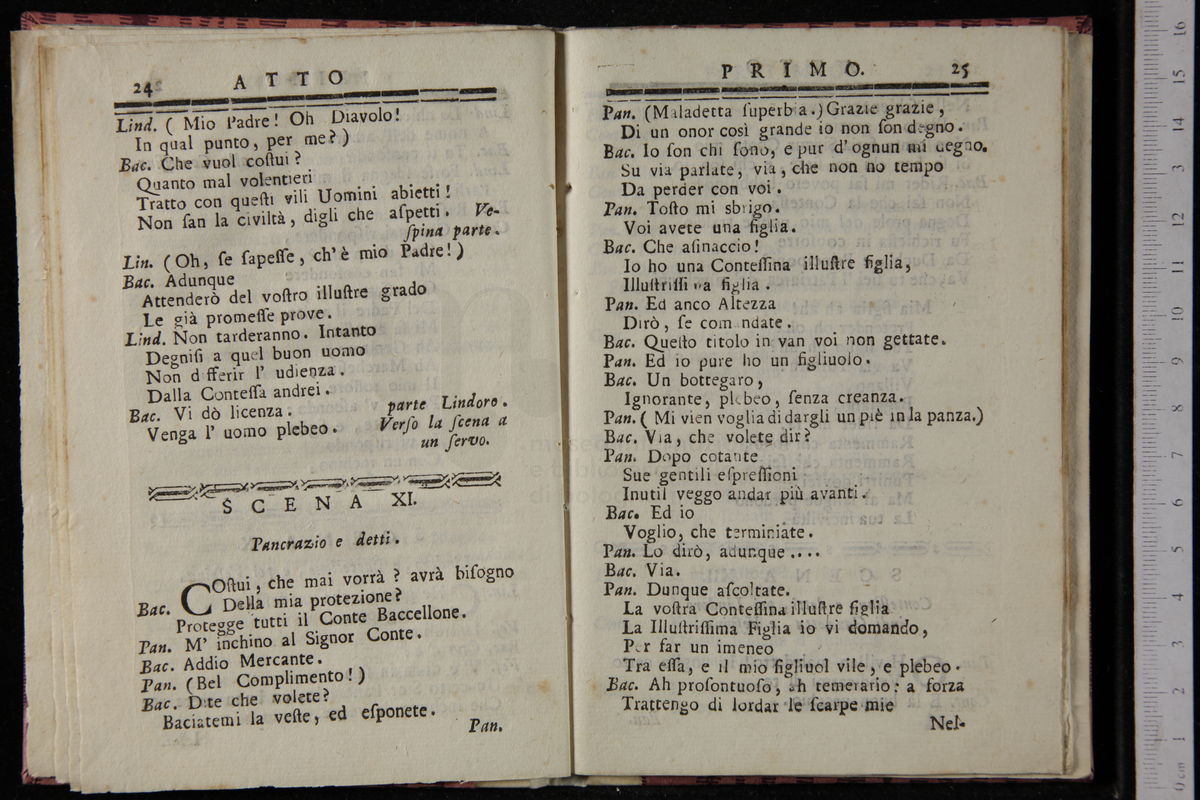 24
ATTO
Lind. ( Mio Padre! Oh Diavolo!
In qual punto, per me? )
Bac. Che vuol coſtui?
Quanto mal volentieri
Tratto con queſti vili Uomini abietti!
Non ſan la civiltà, digli che aſpetti. Ve-
ſpina parte.
Lin. ( Oh, ſe ſapeſſe, ch' è mio Padre! )
Bac. Adunque
Attenderò del voſtro illuſtre grado
Le già promeſſe prove.
Lind. Non tarderanno. Intanto
Degniſi a quel buon uomo
Non d fferir l' udienza.
Dalla Conteſſa andrei.
Bac. Vi dò licenza. parte Lindoro.
Venga l' uomo plebeo. Verſo la ſcena a
un ſervo.
SCENA XI.
Pancrazio e detti.
Bac. COſtui, che mai vorrà? avrà biſogno
Della mia protezione?
Protegge tutti il Conte Baccellone.
Pan. M' inchino al Signor Conte.
Bac. Addio Mercante.
Pan. (Bel Complimento!)
Bac. Dite che volete?
Baciatemi la veſte, ed eſponete.
Pan.
PRIMO. 25
Pan. (Maladetta ſuperbia.) Grazie grazie,
Di un onor così grande io non ſon degno.
Bac. Io ſon chi ſono, e pur d' ognun mi degno.
Su via parlate, via, che non ho tempo
Da perder con voi.
Pan. Toſto mi sbrigo.
Voi avete una figlia.
Bac. Che aſinaccio!
Io ho una Conteſſina illuſtre figlia,
Illuſtriſſima figlia.
Pan. Ed anco Altezza
Dirò, ſe comandate.
Bac. Queſto titolo in van voi non gettate.
Pan. Ed io pure ho un figliuolo.
Bac. Un bottegaro,
Ignorante, plebeo, ſenza creanza.
Pan. ( Mi vien voglia di dargli un piè in la panza.)
Bac. Via, che volete dir?
Pan. Dopo cotante
Sue gentili eſpreſſioni
Inutil veggo andar più avanti.
Bac. Ed io
Voglio, che terminiate.
Pan. Lo dirò, adunque ....
Bac. Via.
Pan. Dunque aſcoltate.
La voſtra Conteſſina illuſtre figlia
La Illuſtriſſima Figlia io vi domando,
Per far un imeneo
Tra eſſa, e il mio figliuol vile, e plebeo.
Bac. Ah proſontuoſo, ah temerario: a forza
Trattengo di lordar le ſcarpe mie
Nel-